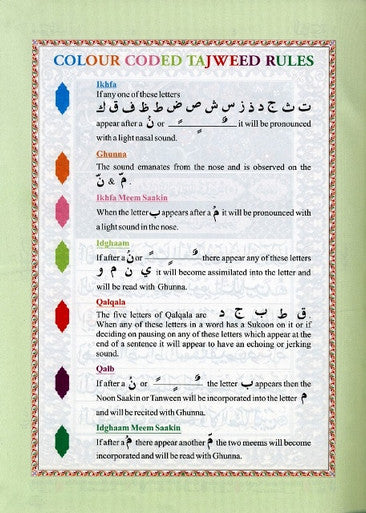 COLOUR CODED TAJWEED RULES
Ikhfa
If any one of these letters
ت ث ج د ذ ز س ش ص ض ط ظ ف ق ك
appear after a نْ or ـًـٍـٌ it will be pronounced
with a light nasal sound.
Ghunna
The sound emanates from the nose and is observed on the
نّ & مّ .
Ikhfa Meem Saakin
When the letter ب appears after مْ it will be pronounced with
a light sound in the nose.
Idghaam
If after a نْ or ـًـٍـٌ there appear any of these letters
ي ن م و it will become assimilated into the letter and
will be read with Ghunna.
Qalqala
The five letters of Qalqala are ق ط ب ج د .
When any of these letters in a word has a Sukoon on it or if
deciding on pausing on any of these letters which appear at the
end of a sentence it will appear to have an echoing or jerking
sound.
Qalb
If after a نْ or ـًـٍـٌ the letter ب appears then the
Noon Saakin or Tanween will be incorporated into the letter م
and will be recited with Ghunna.
Idghaam Meem Saakin
If after a مْ there appear another مّ the two meems will become
incorporated and will be read with Ghunna.